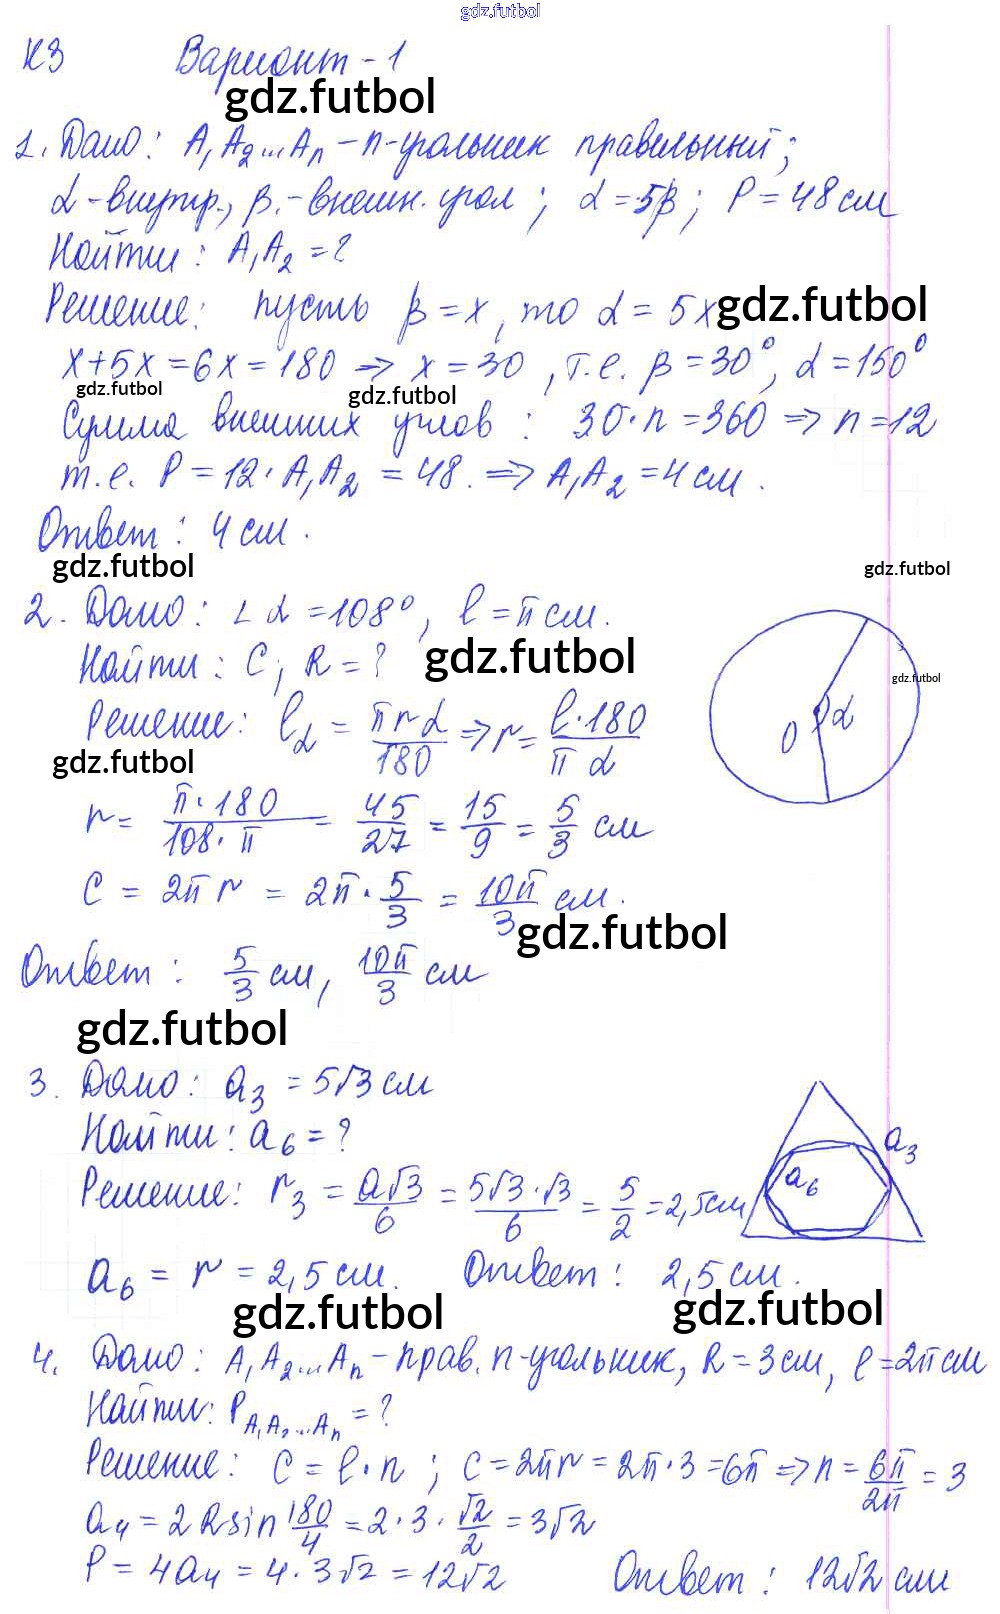 gdz.futbol
К3 Вариант-1
gdz.futbol
1. Дано: A₁A₂...Aₙ - n-угольник правильный;
α-внутр., β.-внешн. угол; α=5β; P=48 см
Найти: A₁A₂=?
Решение: пусть β=x, то α=5x gdz.futbol
x+5x=6x=180 => x=30, т.е. β=30°, α=150°
gdz.futbol gdz.futbol
Сумма внешних углов: 30·n=360 => n=12
т.е. P=12·A₁A₂=48. => A₁A₂=4 см.
Ответ: 4 см.
gdz.futbol gdz.futbol
2. Дано: ∠α=108°, l=π см.
Найти: C; R=? gdz.futbol
gdz.futbol
Решение: l_α = πrα/180 => r = l·180/(π α)
O α
gdz.futbol
r = π·180/(108·π) = 45/27 = 15/9 = 5/3 см
C = 2πr = 2π·5/3 = 10π/3 см.
gdz.futbol
Ответ: 5/3 см, 10π/3 см
gdz.futbol
3. Дано: a₃=5√3 см
Найти: a₆=?
a₃
a₆
Решение: r₃ = a√3/6 = 5√3·√3/6 = 5/2 = 2,5 см
a₆ = r = 2,5 см. Ответ: 2,5 см.
gdz.futbol gdz.futbol
4. Дано: A₁A₂...Aₙ - прав. n-угольник, R=3 см, l=2π см
Найти: P_A₁A₂...Aₙ=?
Решение: C=l·n; C=2πr=2π·3=6π => n=6π/2π=3
a₄=2R sin 180/4 = 2·3·√2/2 = 3√2
P=4a₄=4·3√2=12√2 Ответ: 12√2 см